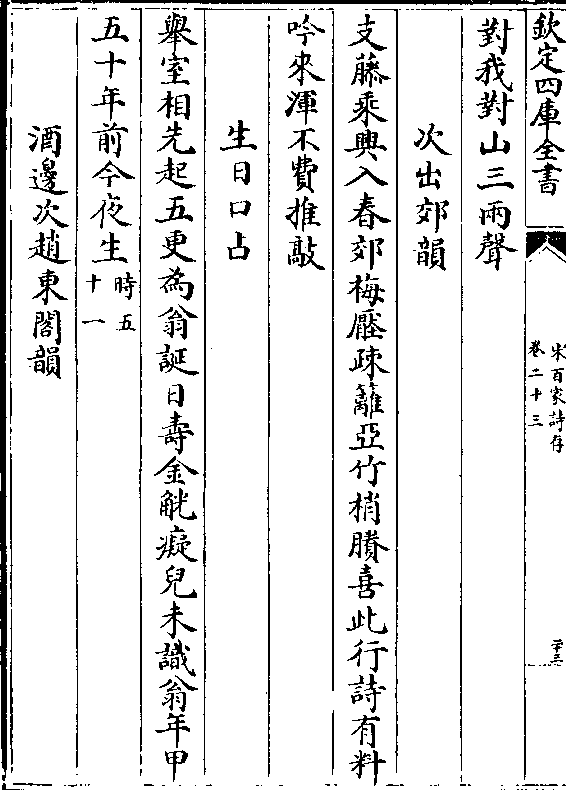 欽定四庫全書
宋百家詩存
卷二十三
二十三
對我對山三兩聲
次出郊韻
支藤乘興入春郊梅壓疎籬亞竹梢賸喜此行詩有料
吟來渾不費推敲
生日口占
舉室相先起五更為翁誕日壽金觥癡兒未識翁年甲
五十年前今夜生時五十一
酒邊次趙東閣韻